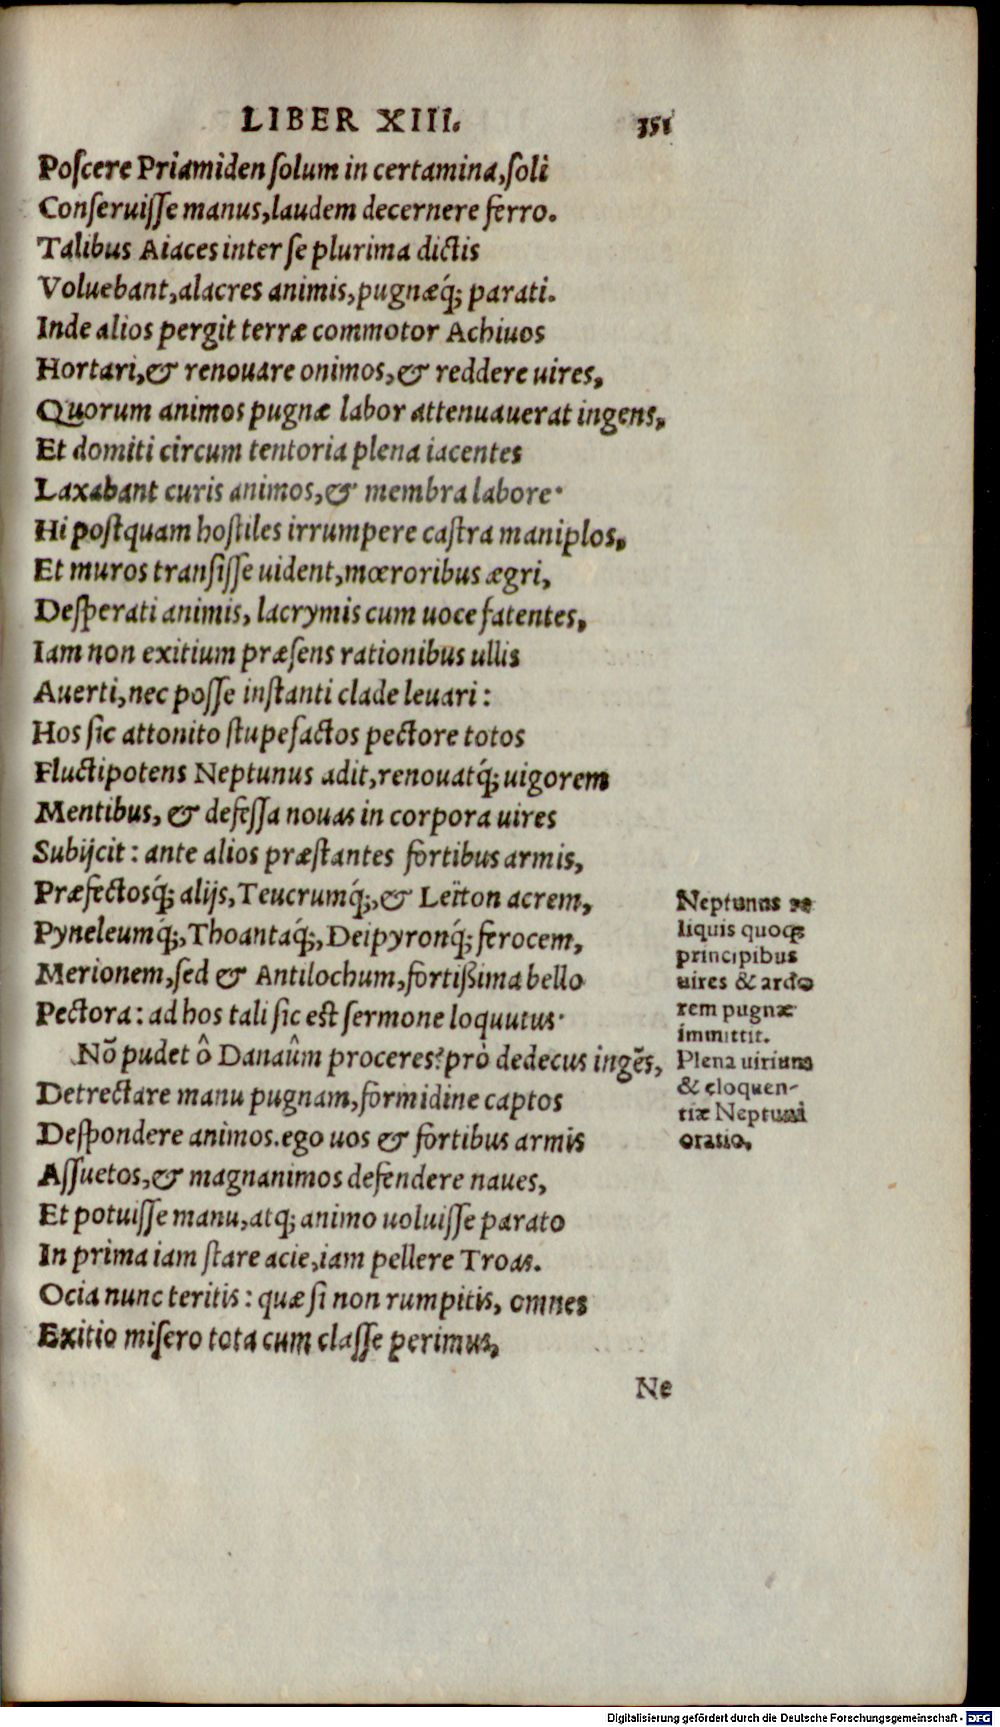 LIBER XIII. 351
Poſcere Priamiden ſolum in certamina, ſoli
Conſeruiſſe manus, laudem decernere ferro.
Talibus Aiaces inter ſe plurima dictis
Voluebant, alacres animis, pugnæq́; parati.
Inde alios pergit terræ commotor Achiuos
Hortari, & renouare onimos, & reddere uires,
Quorum animos pugnæ labor attenuauerat ingens,
Et domiti circum tentoria plena iacentes
Laxabant curis animos, & membra labore·
Hi poſtquam hoſtiles irrumpere caſtra maniplos,
Et muros tranſiſſe uident, mœroribus ægri,
Deſperati animis, lacrymis cum uoce fatentes,
Iam non exitium præſens rationibus ullis
Auerti, nec poſſe inſtanti clade leuari:
Hos ſic attonito ſtupefactos pectore totos
Fluctipotens Neptunus adit, renouatq́; uigorem
Mentibus, & defeſſa nouas in corpora uires
Subijcit: ante alios præſtantes fortibus armis,
Præfectosq́; alijs, Teucrumq́;, & Leïton acrem,
Pyneleumq́;, Thoantaq́;, Deipyronq́; ferocem,
Merionem, ſed & Antilochum, fortißima bello
Pectora: ad hos tali ſic eſt ſermone loquutus·
Nō pudet ô Danaûm proceres? prò dedecus ingēs,
Detrectare manu pugnam, formidine captos
Deſpondere animos. ego uos & fortibus armis
Aſſuetos, & magnanimos defendere naues,
Et potuiſſe manu, atq; animo uoluiſſe parato
In prima iam ſtare acie, iam pellere Troas.
Ocia nunc teritis: quæ ſi non rumpitis, omnes
Exitio miſero tota cum claſſe perimus,
Ne
Neptunus re
liquis quoqꝫ
principibus
uires & ardo
rem pugnæ
immittit.
Plena uirium
& eloquen-
tiæ Neptuni
oratio,
Digitalisierung gefördert durch die Deutsche Forschungsgemeinschaft - DFG